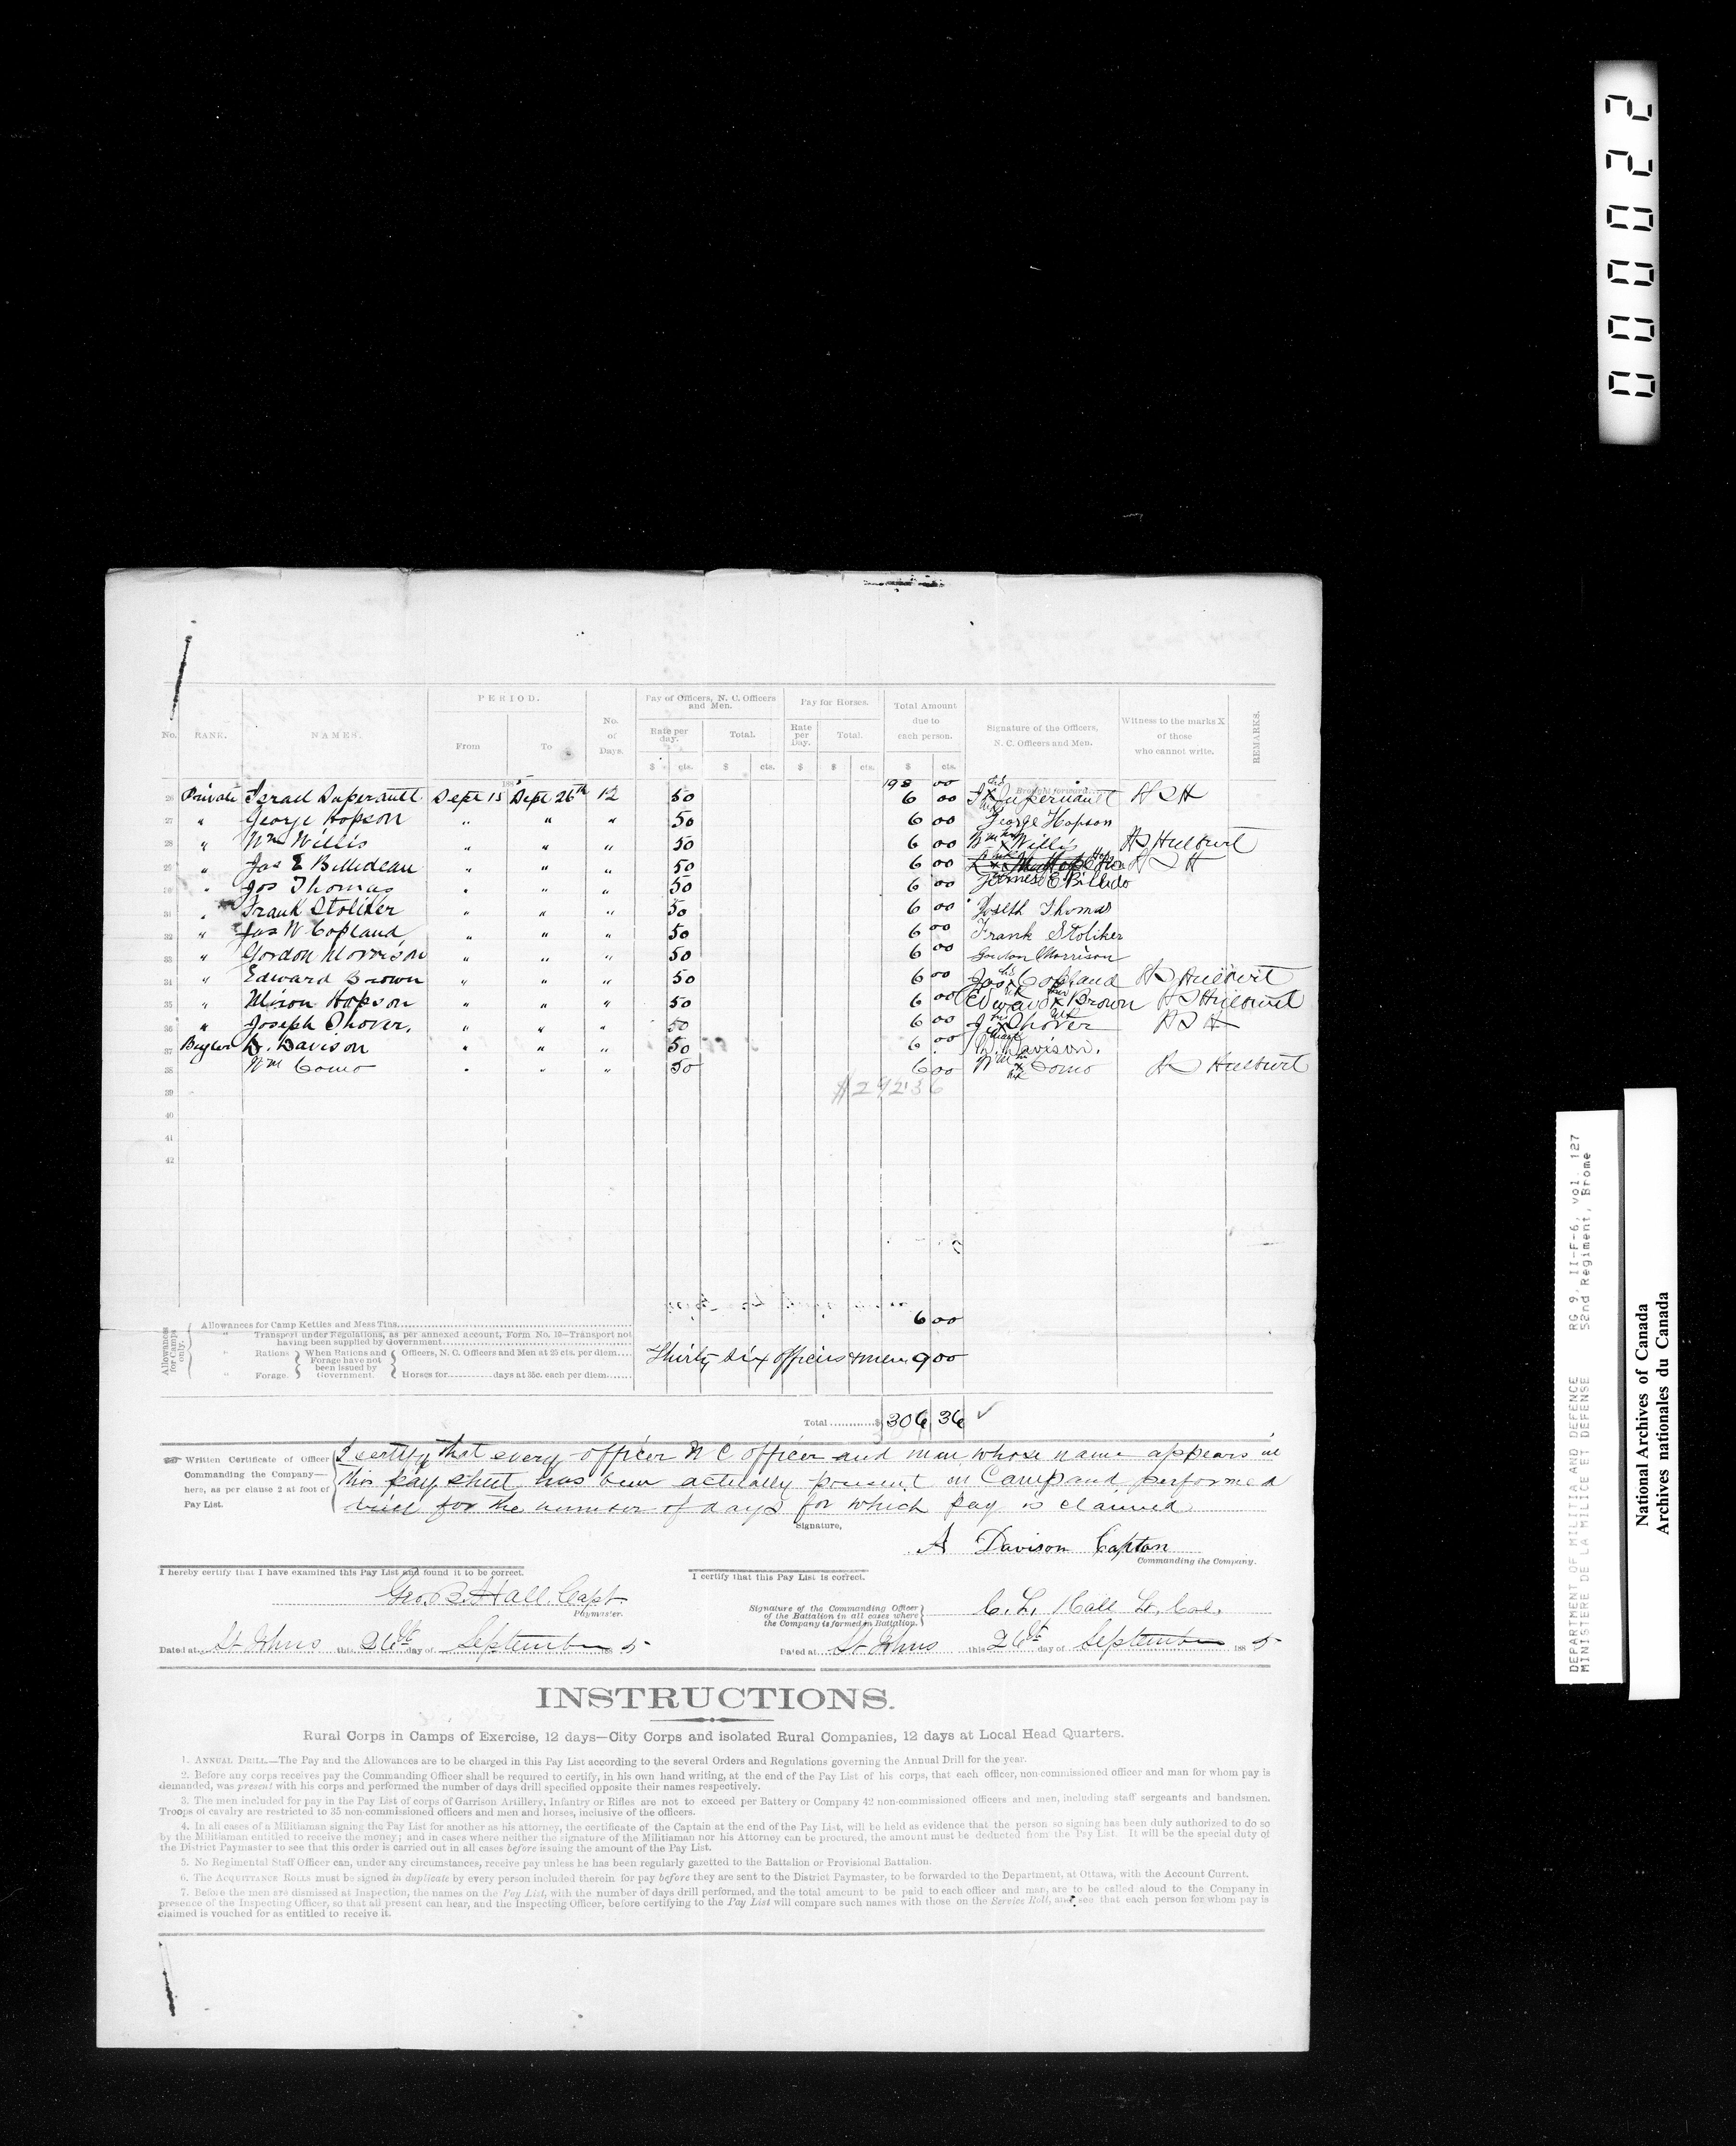 000022
PERIOD.
Pay of Officers, N. C. Officers and Men.
Pay for Horses.
Total Amount due to each person.
No.
RANK.
NAMES.
From
To
No. of Days.
Rate per day.
Total.
Rate per Day.
Total.
Signature of the Officers, N. C. Officers and Men.
Witness to the marks X of those who cannot write.
REMARKS.
$ cts. $ cts. $ $ cts. $ cts.
1885
Brought forward 198 00
26 Private Israel Duperault Sept 15 Sept 26th 12 50 6 00 I x Duperuault H S H
27 " George Hopson " " " 50 6 00 George Hopson
28 " Wm Willis " " " 50 6 00 Wm x Willis H S Hulburt
29 " Jas E Billideau " " " 50 6 00 H S H
" Jos Thomas " " " 50 6 00 James E Billido
31 " Frank Stoliker " " " 50 6 00 Joseth Thomas
32 " Jas W Copland " " " 50 6 00 Frank Stoliker
33 " Gordon Morrison " " " 50 6 00 Gordon Morrison
34 " Edward Brown " " " 50 6 00 Jas x Copland H S Hulburt
35 " Miron Hopson " " " 50 6 00 Edward x Brown H S Hulburt
36 " Joseph Thover. " " " 50 6 00 J x Thover H S H
37 Bugler D. Davison " " " 50 6 00 D. Davison.
38 Wm Como " " " 50 6 00 Wm x Como H S Hulburt
39 $292.36
40
41
42
Allowances for Camps only.
Allowances for Camp Kettles and Mess Tins 6 00
" Transport under Regulations, as per annexed account, Form No. 10—Transport not having been supplied by Government
" Rations When Rations and Forage have not been issued by Government. Officers, N. C. Officers and Men at 25 cts. per diem Thirty six officers & men 9 00
" Forage. Horses for days at 35c. each per diem
Total $ 306 36 ✓
Written Certificate of Officer Commanding the Company—here, as per clause 2 at foot of Pay List.
I certify that every officer N C officer and man whose name appears in
this pay sheet has been actually present in Camp and performed
drill for the number of days for which pay is claimed
Signature,
A Davison Captan
Commanding the Company.
I hereby certify that I have examined this Pay List and found it to be correct.
Geo. B. Hall, Capt
Paymaster.
I certify that this Pay List is correct.
Signature of the Commanding Officer of the Battalion in all cases where the Company is formed in Battalion.
C. L. Hall Lt. Col.
Dated at St Johns this 26th day of September 1885
Dated at St Johns this 26th day of September 1885
INSTRUCTIONS.
Rural Corps in Camps of Exercise, 12 days—City Corps and isolated Rural Companies, 12 days at Local Head Quarters.
1. ANNUAL DRILL.—The Pay and the Allowances are to be charged in this Pay List according to the several Orders and Regulations governing the Annual Drill for the year.
2. Before any corps receives pay the Commanding Officer shall be required to certify, in his own hand writing, at the end of the Pay List of his corps, that each officer, non-commissioned officer and man for whom pay is
demanded, was present with his corps and performed the number of days drill specified opposite their names respectively.
3. The men included for pay in the Pay List of corps of Garrison Artillery, Infantry or Rifles are not to exceed per Battery or Company 42 non-commissioned officers and men, including staff sergeants and bandsmen.
Troops of cavalry are restricted to 35 non-commissioned officers and men and horses, inclusive of the officers.
4. In all cases of a Militiaman signing the Pay List for another as his attorney, the certificate of the Captain at the end of the Pay List, will be held as evidence that the person so signing has been duly authorized to do so
by the Militiaman entitled to receive the money; and in cases where neither the signature of the Militiaman nor his Attorney can be procured, the amount must be deducted from the Pay List. It will be the special duty of
the District Paymaster to see that this order is carried out in all cases before issuing the amount of the Pay List.
5. No Regimental Staff Officer can, under any circumstances, receive pay unless he has been regularly gazetted to the Battalion or Provisional Battalion.
6. The ACQUITTANCE ROLLS must be signed in duplicate by every person included therein for pay before they are sent to the District Paymaster, to be forwarded to the Department, at Ottawa, with the Account Current.
7. Before the men are dismissed at Inspection, the names on the Pay List, with the number of days drill performed, and the total amount to be paid to each officer and man, are to be called aloud to the Company in
presence of the Inspecting Officer, so that all present can hear, and the Inspecting Officer, before certifying to the Pay List will compare such names with those on the Service Roll, and see that each person for whom pay is
claimed is vouched for as entitled to receive it.
DEPARTMENT OF MILITIA AND DEFENCE RG 9, II-F-6, vol. 127
MINISTERE DE LA MILICE ET DEFENSE 52nd Regiment, Brome
National Archives of Canada
Archives nationales du Canada